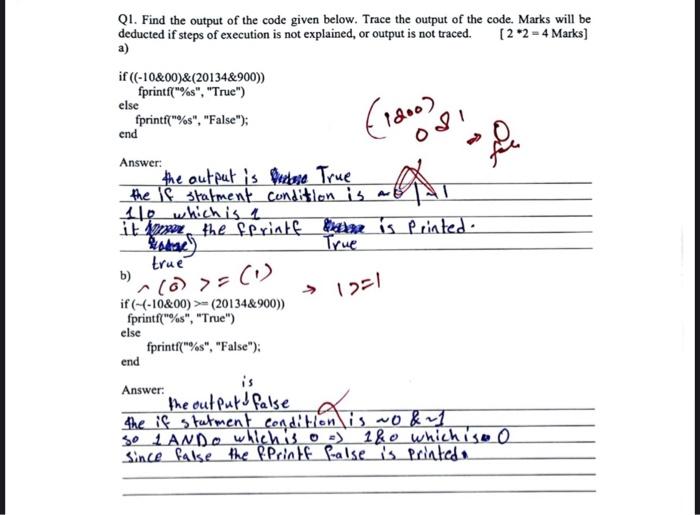 Q1. Find the output of the code given below. Trace the output of the code. Marks will be
deducted if steps of execution is not explained, or output is not traced. [ 2 *2 = 4 Marks]
a)
if ((-10&00)&(20134&900))
fprintf("%s", "True")
else
fprintf("%s", "False");
end
0 & 1
Answer:
the output is True
the if statment condition is ~0 | ~1
1|0 which is 1
it the fprintf is Printed.
True
true
b)
~ (0) >= (1)
→ 1>=1
if (~(-10&00) >= (20134&900))
fprintf("%s", "True")
else
fprintf("%s", "False");
end
Answer:
is
the output false
the if statment condition is ~0 & ~1
so 1 AND 0 which is 0 => 1&0 which is 0
Since false the fPrintf false is Printed.